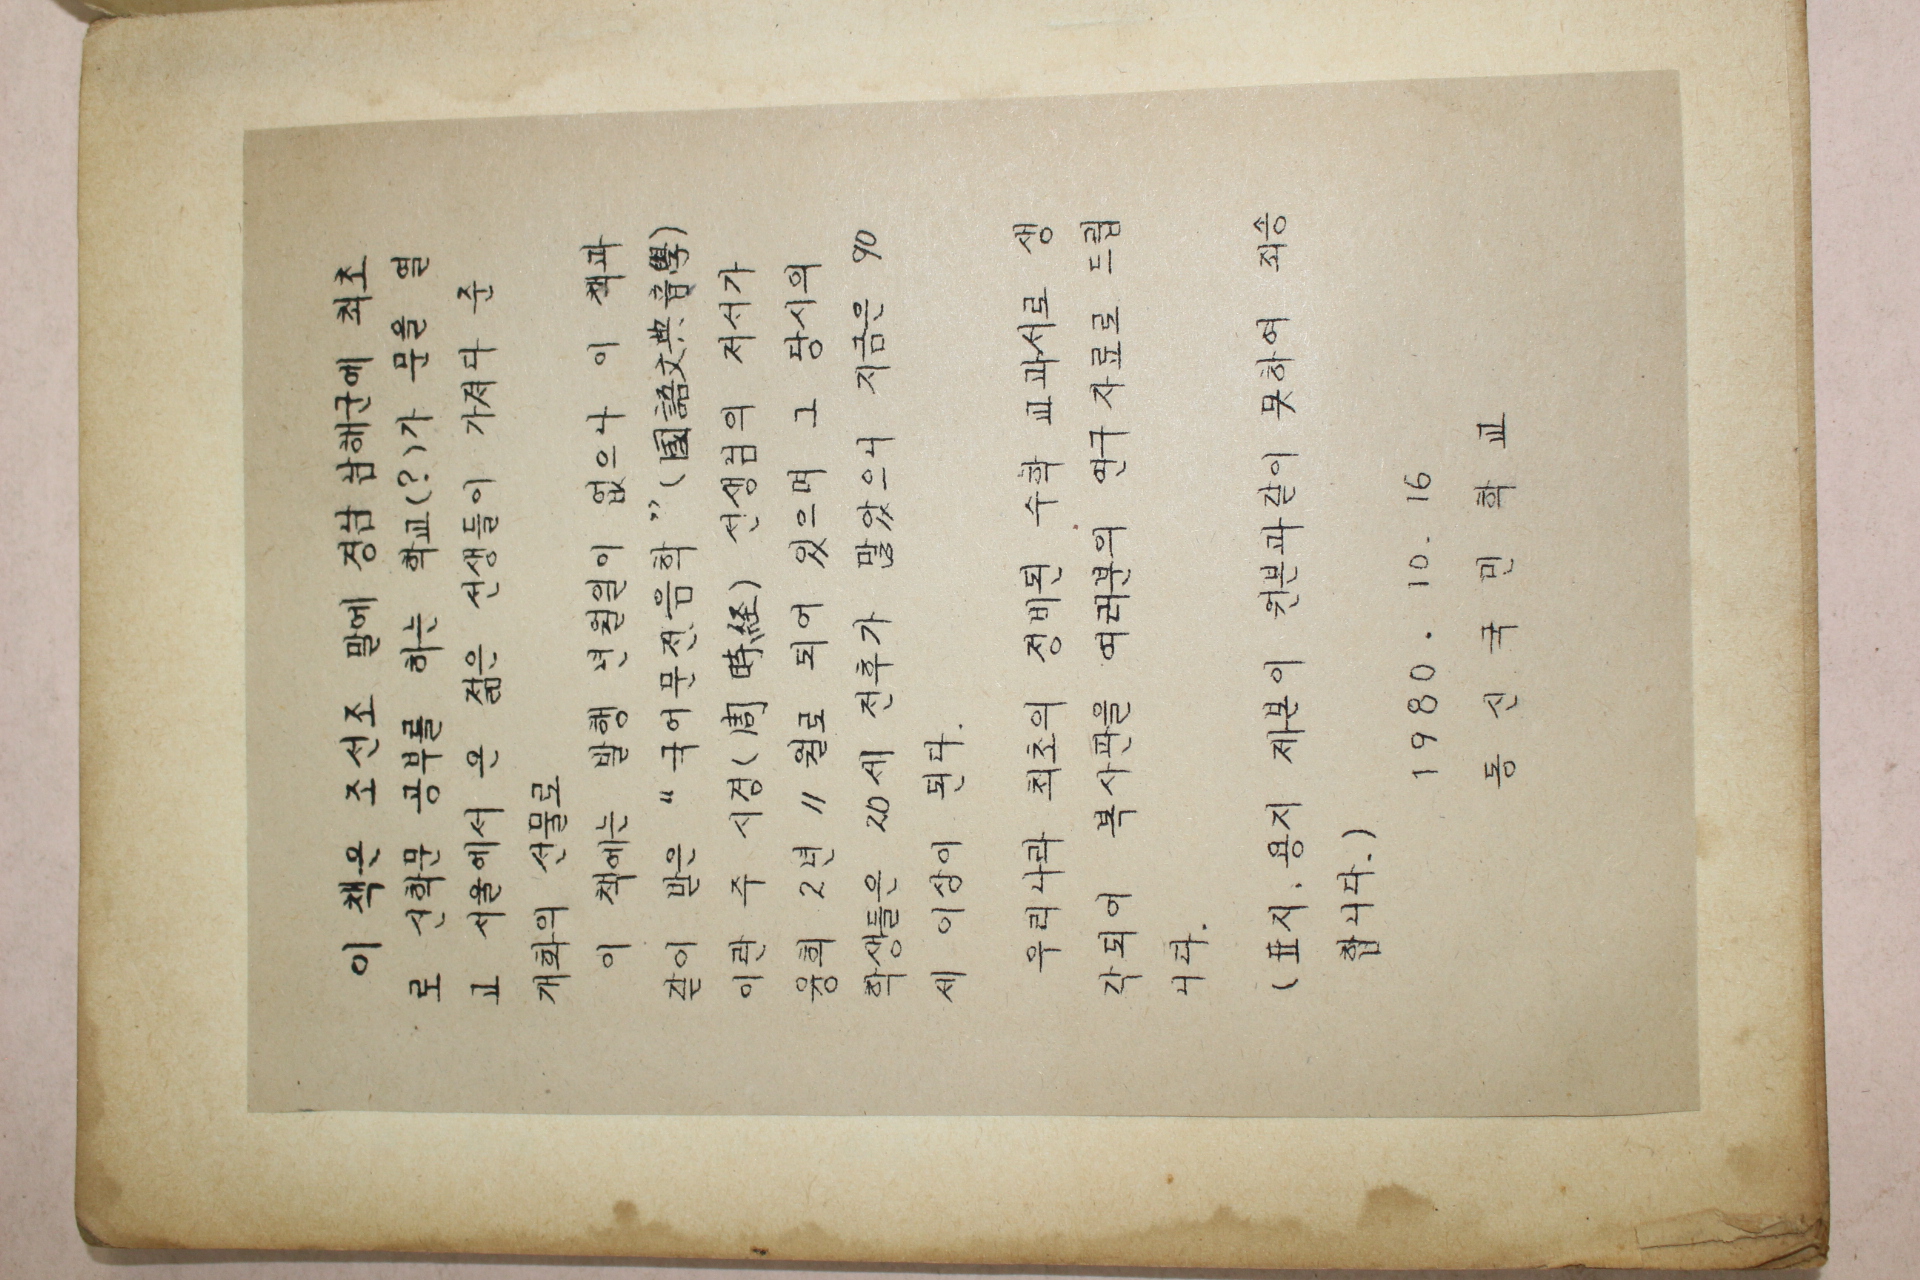 이 책은 조선조 말에 경남 남해군에 최초
로 신학문 공부를 하는 학교(?)가 문을 열
고 서울에서 온 젊은 선생들이 가져다 준
개화의 선물로
이 책에는 발행 년월일이 없으나 이 책과
같이 받은 “국어문전음학”(國語文典音學)
이란 주시경(周時経) 선생님의 저서가
융희 2년 11월로 되어 있으며 그 당시의
학생들은 20세 전후가 많았으니 지금은 90
세 이상이 된다.
우리나라 최초의 정비된 수학 교과서로 생
각되어 복사판을 여러분의 연구자료로 드립
니다.
(표지. 용지 제본이 원본과같이 못하여 죄송
합니다.)
1980. 10. 16
동신국민학교